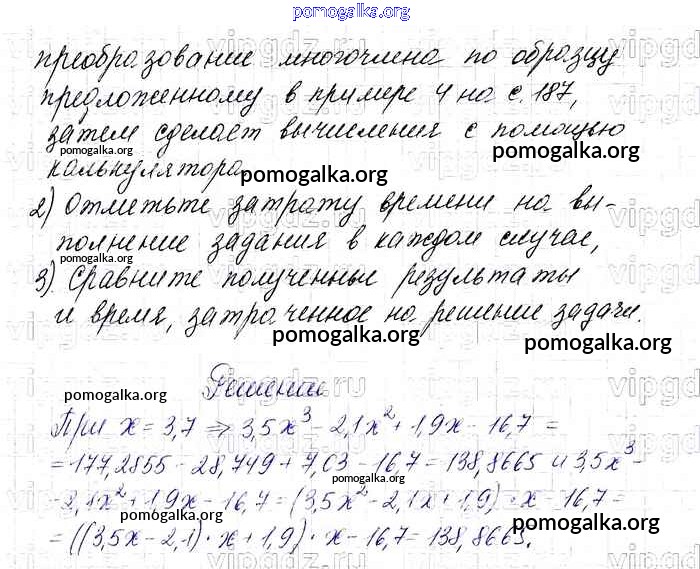 pomogalka.org
преобразование многочлена по образцу
предложенному в примере 4 на с. 187,
затем сделает вычисления с помощью
калькулятора.
pomogalka.org
pomogalka.org
2) Отметьте затрату времени на вы-
полнение задания в каждом случае,
pomogalka.org
3) Сравните полученные результаты
и время, затраченное на решение задачи.
pomogalka.org
pomogalka.org
Решение
pomogalka.org
pomogalka.org
При x = 3,7 ⇒ 3,5x³ - 2,1x² + 1,9x - 16,7 =
= 177,2855 - 28,749 + 7,03 - 16,7 = 138,8665 и 3,5x³ -
- 2,1x² + 1,9x - 16,7 = (3,5x² - 2,1x + 1,9) · x - 16,7 =
pomogalka.org
pomogalka.org
pomogalka.org
= ((3,5x - 2,1) · x + 1,9) · x - 16,7 = 138,8665.